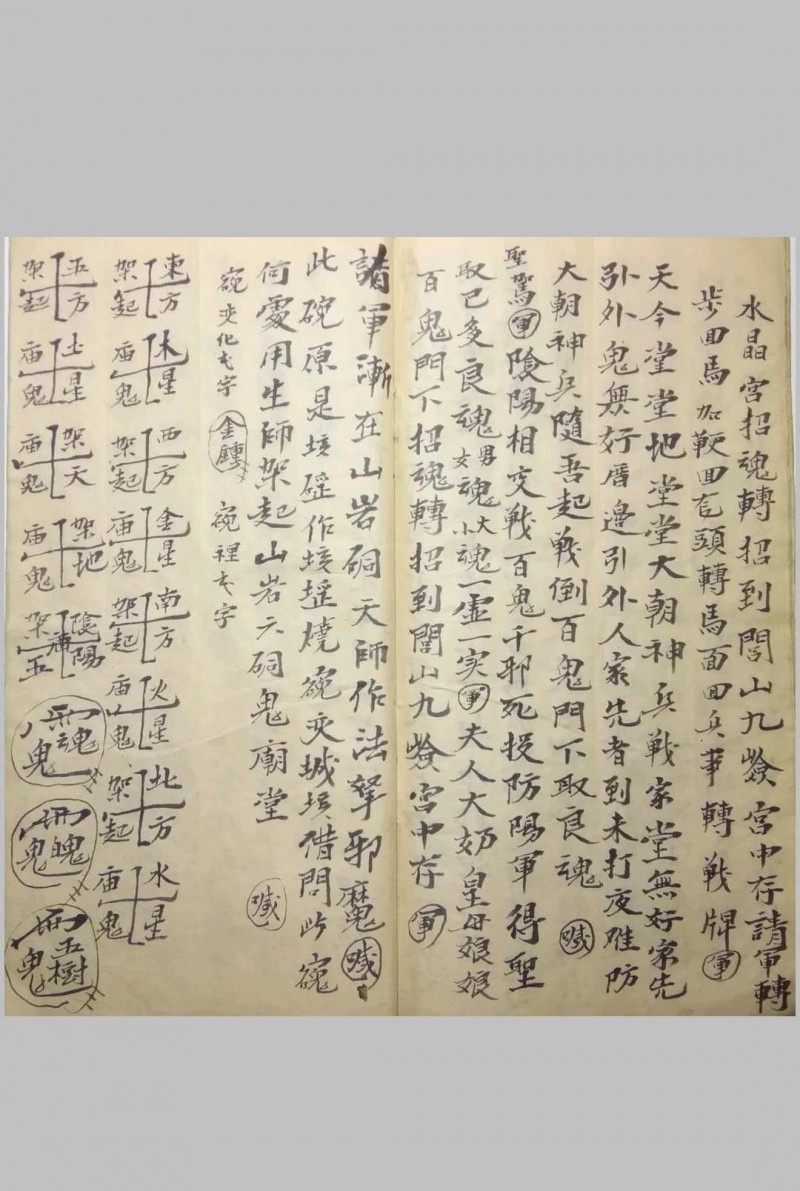 水晶宮招魂轉招到閭山九　宮中存請軍轉
步回馬加鞭回　頭轉馬面回兵　轉戦牌軍
天今堂堂地堂堂大朝神兵戦家堂無好家先
引外鬼無好　邊引外人家先者到未打夜　防
大朝神兵隨吾起戦倒百鬼門下取良魂　喊
聖駕軍陰陽相交戦百鬼千邪死投防陽軍得聖
取已　良魂男女魂大小魂一虚一实軍夫人大奶皇母娘娘
百鬼門下招魂轉招到閭山九　宮中存　軍
請軍漸在山岩硐天師作法拏邪魔喊
此碗原是垓　作垓　燒碗灵城垓借問此碗
何處用生師架起山岩六硐鬼廟堂　喊
碗变化　字　金　　碗裡　字
東方架起　木星庙鬼　西方架起　金星庙鬼　南方架起　火星庙鬼　北方架起　水星庙鬼
五方架起　土星庙鬼　架天庙鬼　架地庙鬼　陰陽架　五　魂鬼　魄鬼　五樹鬼